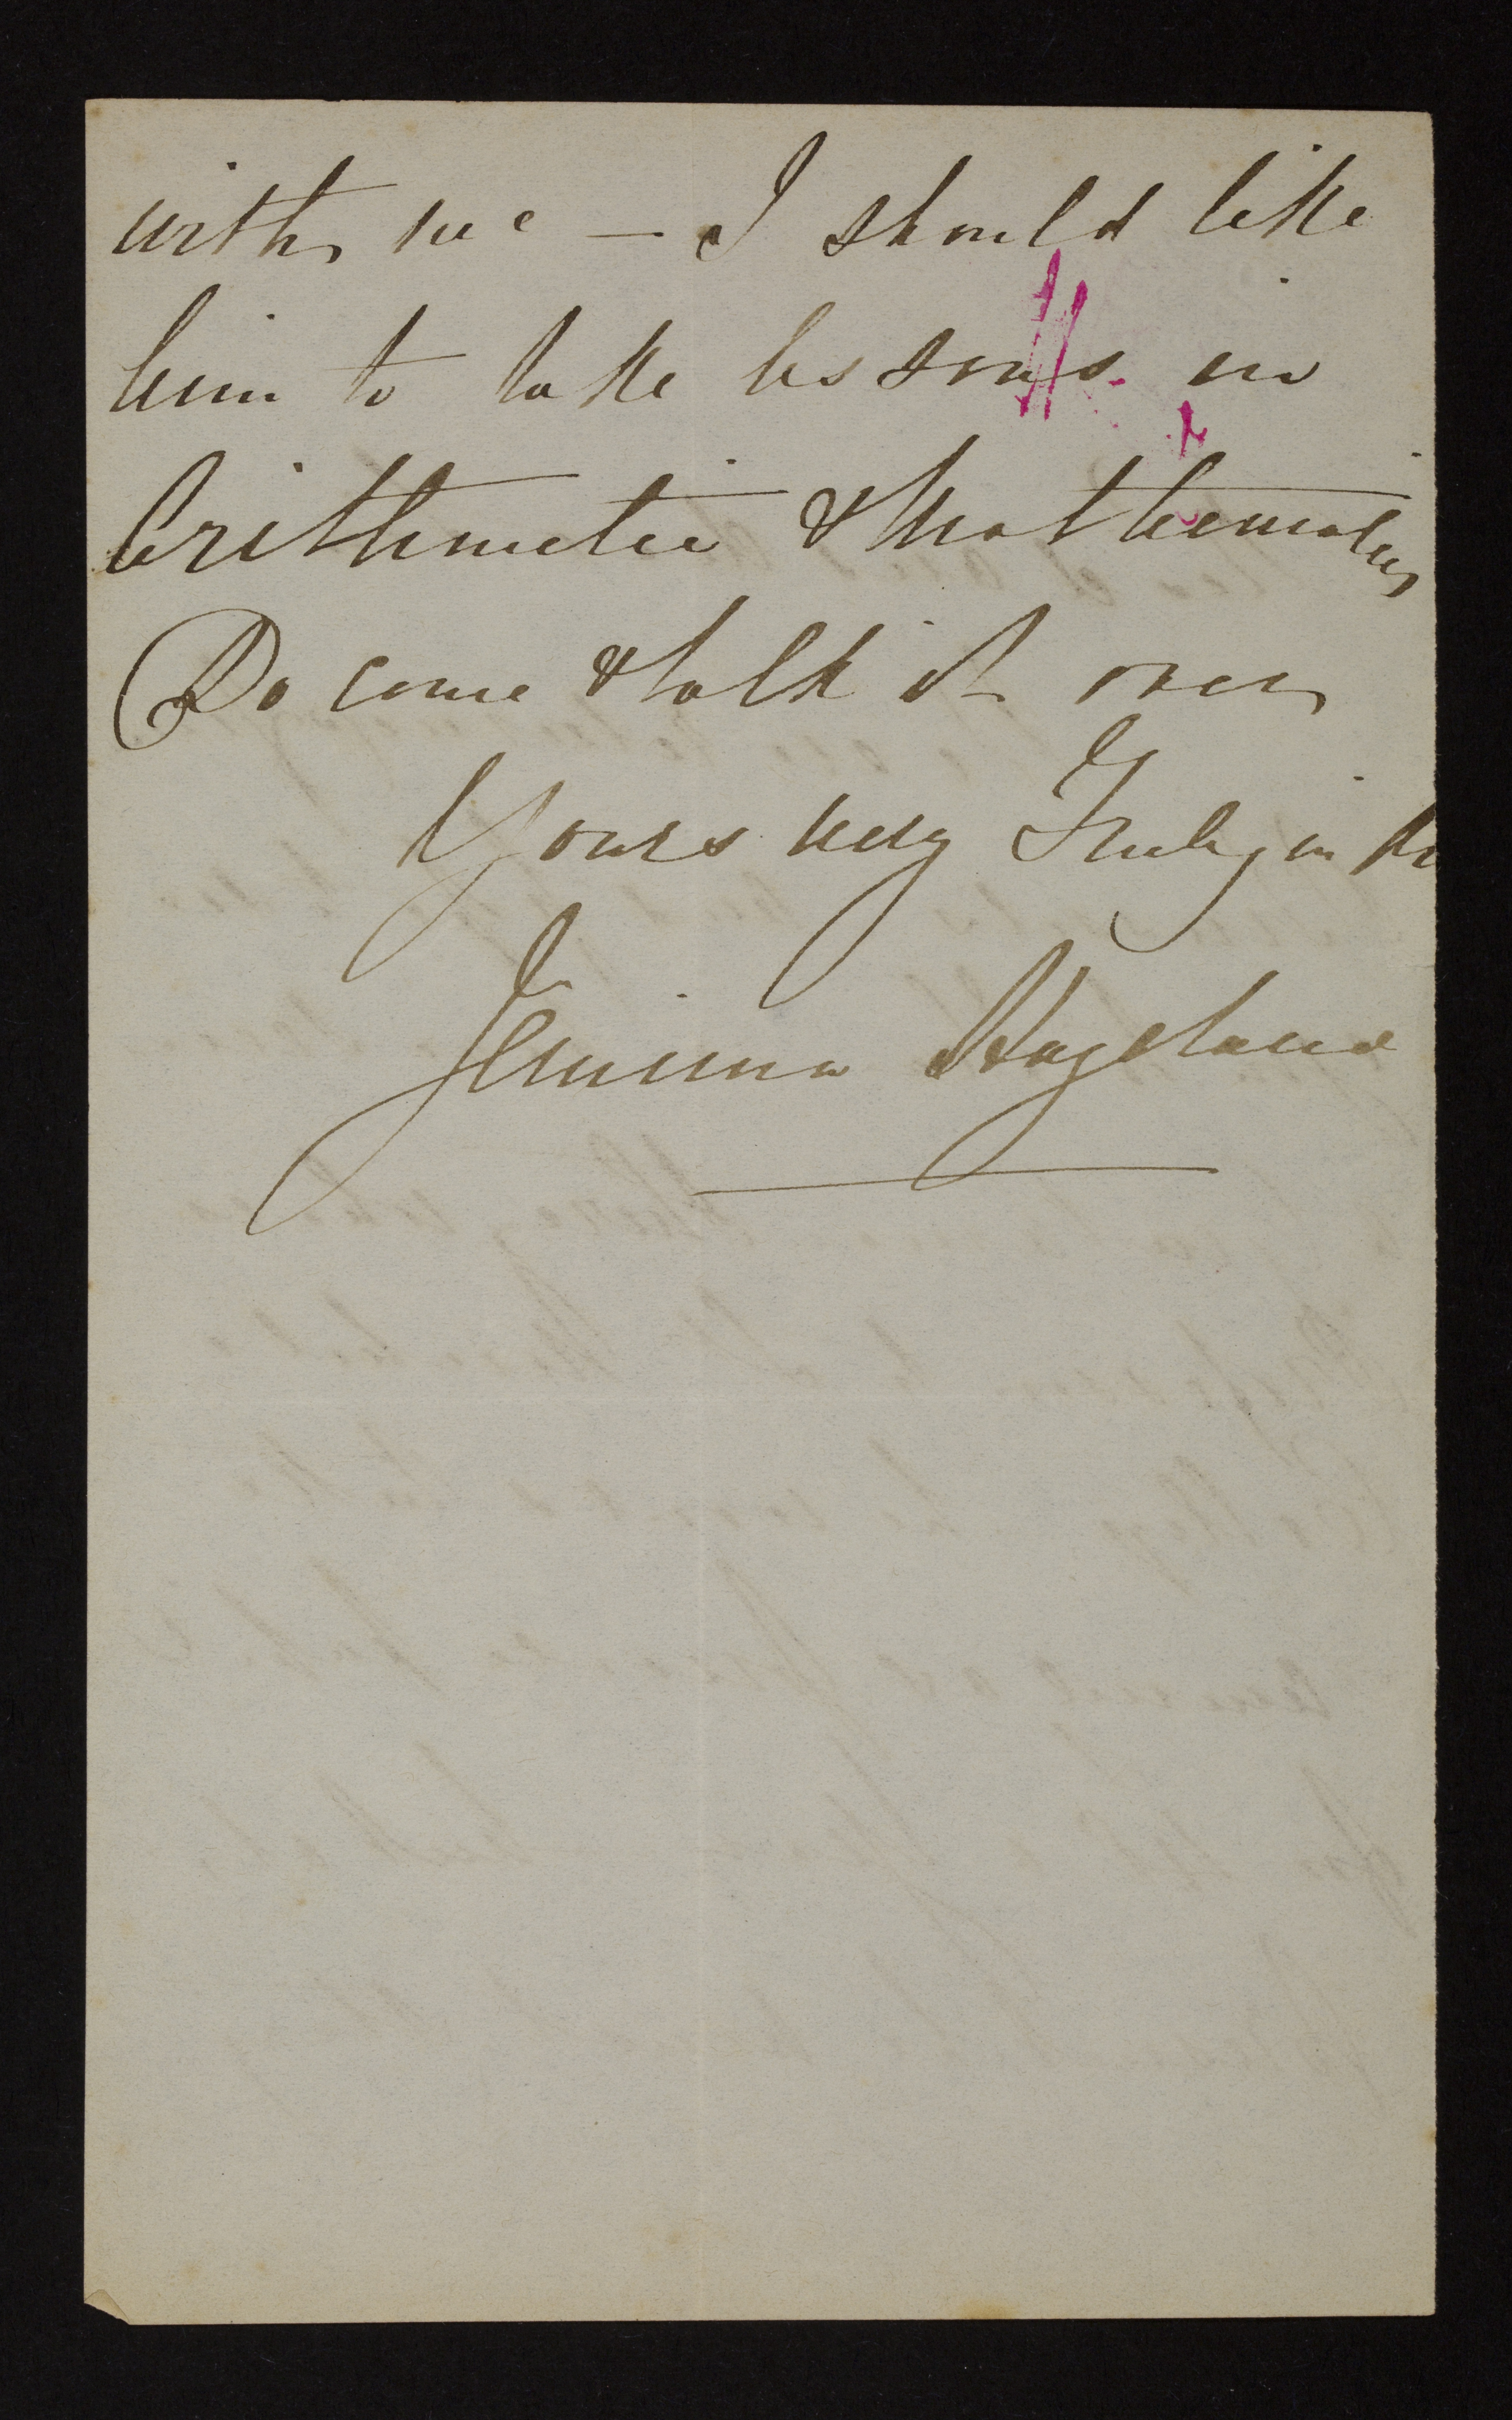 with me — I should like
him to take lessons in
Arithmetic & Mathematics
Do come & talk it over
Yours very Truly in
Jemima